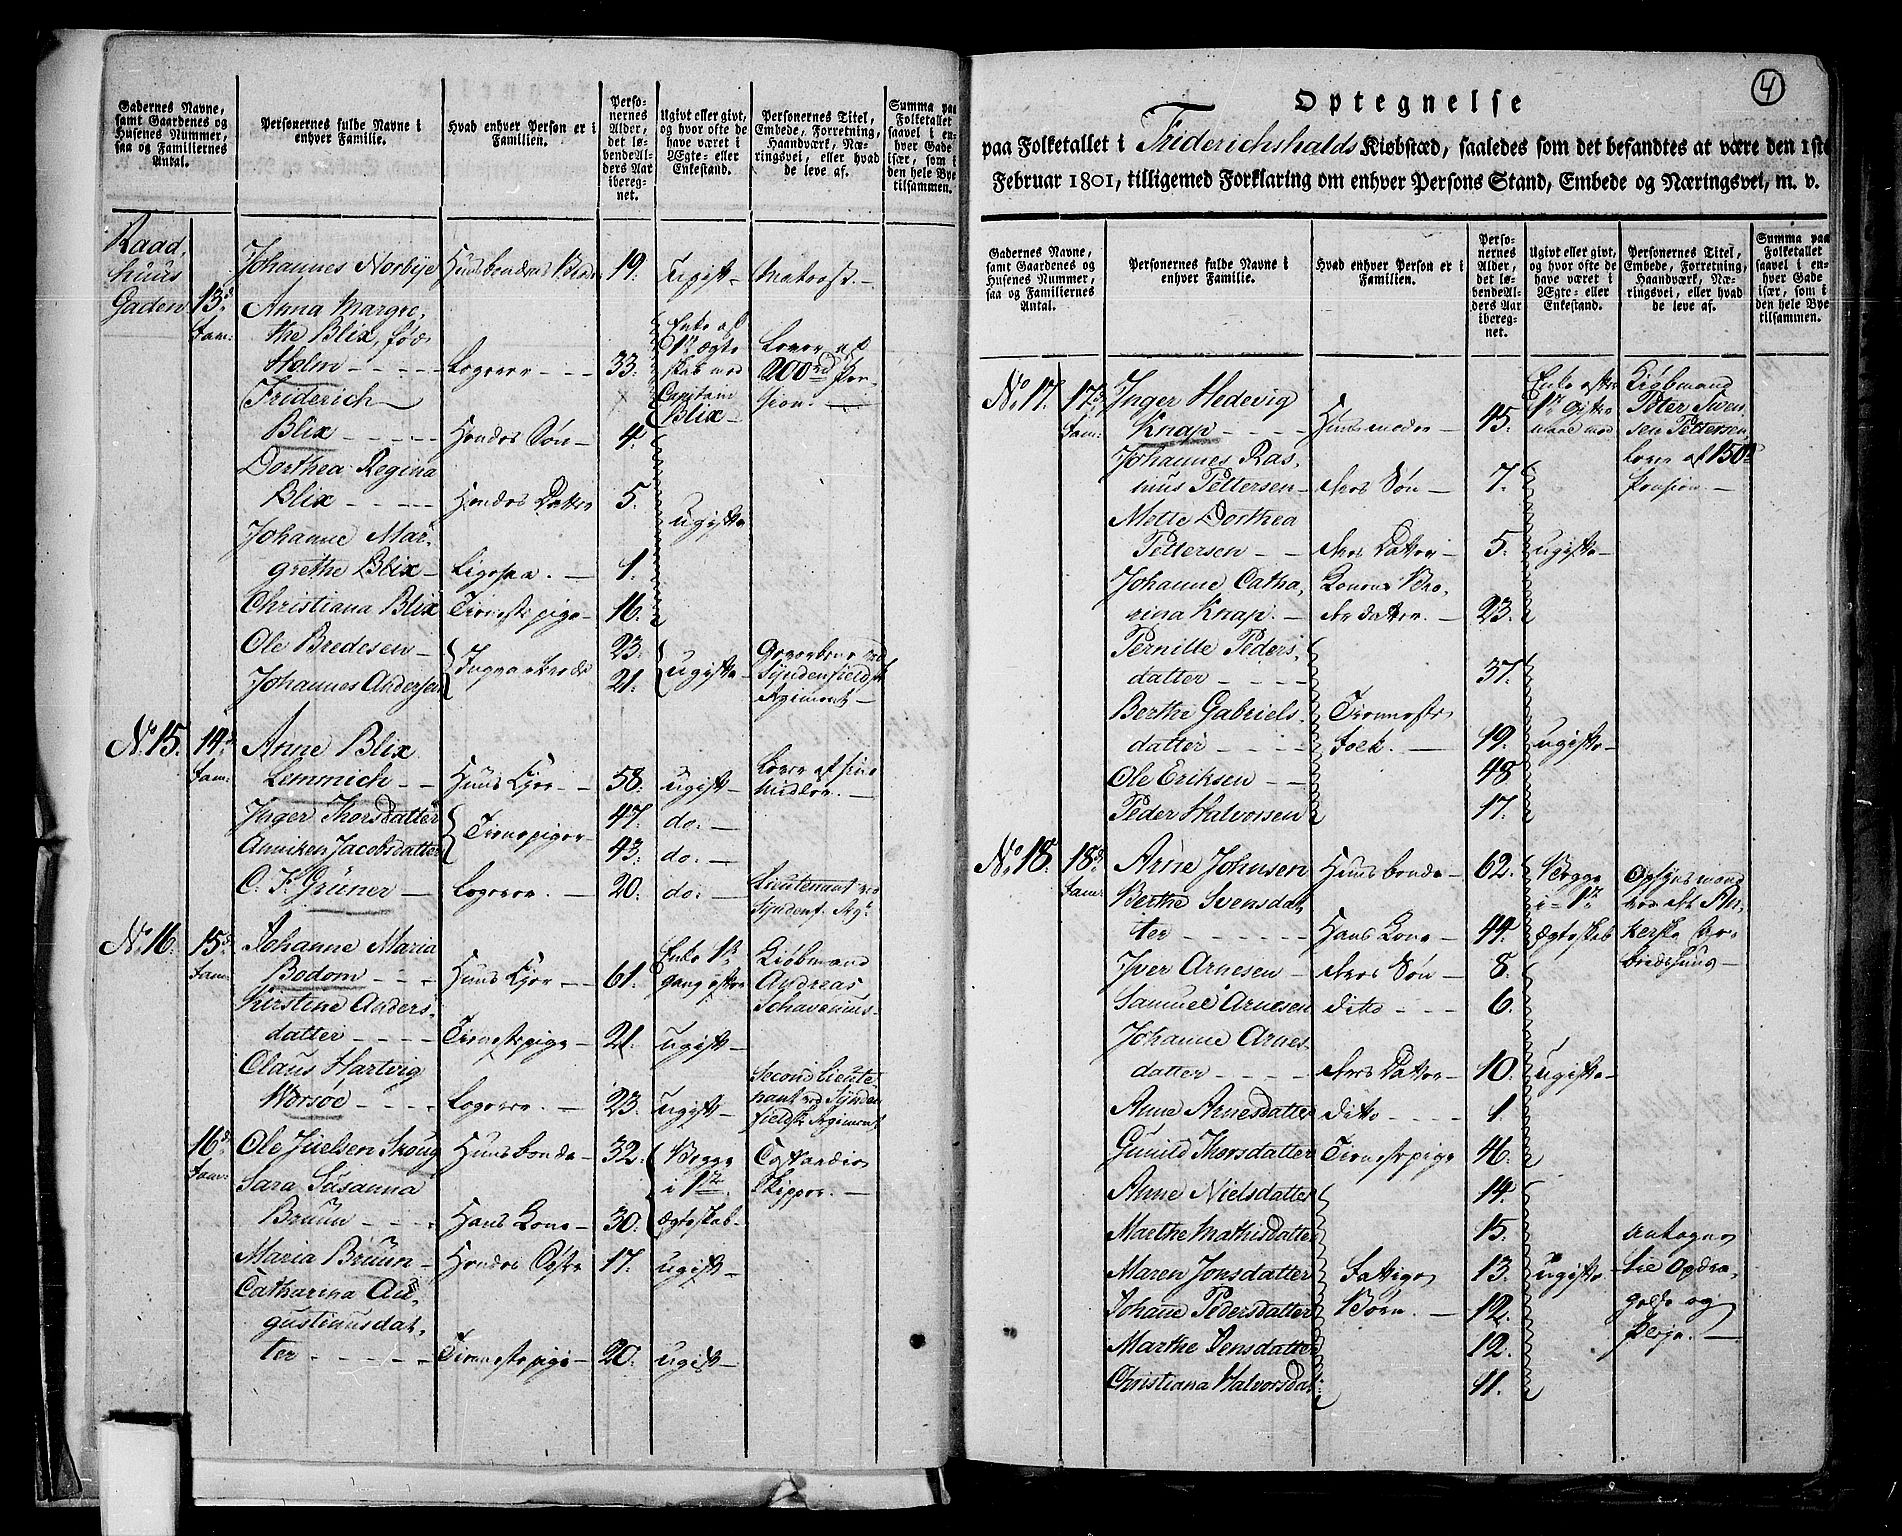 Gadernes Navne,
samt Gaardenes og
Husenes Nummer,
saa og Familiernes
Antal.
Personernes fulde Navne i
enhver Familie.
Hvad enhver Person er i
Familien.
Perso-
nernes
Alder,
det lø-
bende Al-
ders Aar
iberegnet.
Ugivt eller givt,
og hvor ofte de
have været i
Ægte- eller
Enkestand.
Personernes Titel,
Embede, Forretning,
Haandværk, Næ-
ringsvei, eller hvad
de leve af.
Summa paa
Folketallet
saavel i en-
hver Gade
især, som i
den hele Bye
tilsammen.
Raad,
huus
Gaden
Johannes Norbye Huusbondens Broder 19. ugift Matros.
13de Fam:
Anna Margre,
the Blix, fød
Holm Logerer 33. Enke af 1te Ægteskab med Capitain Blix Lever af 200 rd Pension.
Friderich
Blix Hendes Søn 4.
Dorthea Regina
Blix Hendes Datter 5. ugifte
Johanne Mar,
grethe Blix Ligesaa. 1.
Christiana Blix Tienestepige 16.
Ole Bredesen 23.
Johannes Andersen 21. ugifte
Gevorbene ved Syndenfieldske Regiment
No. 15. 14de Fam:
Anne Blix
Lemmich Huus Ejer 58. ugift Lever af sine Midler.
Inger Thorsdatter Tienepiger 47. do:
Anniken Jacobsdatter 43. do:
C. F. Grüner Logerer. 20. do: Lieutenant ved Syndenf. Reg:
No. 16. 15de Fam:
Johanne Maria
Bodom Huus Ejer 61. Enke 1te gang efter Kiøbmand Andreas Schavenius
Kirstine Anders,
datter Tienestepige 21. ugift
Claus Hartvig
Worsøe Logerer. 23. ugift Second Lieutenant ved Syndenfieldske Regiment
16de Fam:
Ole Juelsen Skoug Huusbonde 32. Begge i 1te Ægteskab Costardie Skipper.
Sara Susanna
Bruun Hans Kone 30.
Maria Bruun Hendes Søster 17. ugift
Catharina Au,
gustinusdat,
ter Tienestepige 20. ugift
4
Optegnelse
paa Folketallet i Friderichshalds Kiøbstæd, saaledes som det befandtes at være den 1ste
Februar 1801, tilligemed Forklaring om enhver Persons Stand, Embede og Næringsvei, m. v.
Gadernes Navne,
samt Gaardenes og
Husenes Nummer,
saa og Familiernes
Antal.
Personernes fulde Navne i
enhver Familie.
Hvad enhver Person er i
Familien.
Perso-
nernes
Alder,
det lø-
bende Al-
ders Aar
iberegnet.
Ugivt eller givt,
og hvor ofte de
have været i
Ægte- eller
Enkestand.
Personernes Titel,
Embede, Forretning,
Haandværk, Næ-
ringsvei, eller hvad
de leve af.
Summa paa
Folketallet
saavel i en-
hver Gade
især, som i
den hele Bye
tilsammen.
No. 17. 17de Fam:
Inger Hedevig
Knap Huusmoder 45. Enke efter 1te Kiøbmand Peter Swensen Pettersen, Lever af 150 rd Pension.
Johannes Ras,
mus Pettersen deres Søn 7.
Mette Dorthea
Pettersen deres Datter 5. ugifte
Johanne Catha,
rina Knap. Konens Broderdatter. 23.
Pernille Peders,
datter 37.
Berthe Gabriels Tieneste
datter Folk. 19. ugifte
Ole Eriksen 48
Peder Halvorsen 17.
No. 18. 18de Fam:
Arne Johnsen Huusbonde 62. Begge i 1te Ægteskab Opsynsmand ved det Ankerske Arbeidshuus
Berthe Svensdat,
ter Hans Kone 44.
Iver Arnesen deres Søn 8.
Samuel Arnesen ditto 6.
Johanne Arnes,
datter deres Datter 10. ugifte
Anne Arnesdatter ditto 1.
Gunild Thorsdatter Tienestepige 46.
Anne Nielsdatter 14.
Marthe Mathisdatter 15.
Maren Jonsdatter Fattige 13. ugifte
Johane Pedersdatter Børn. 12.
Marthe Jensdatter 12.
Christiana Halvorsdat: 11.
Antagne
til Opdra,
gelse og
Pleje.